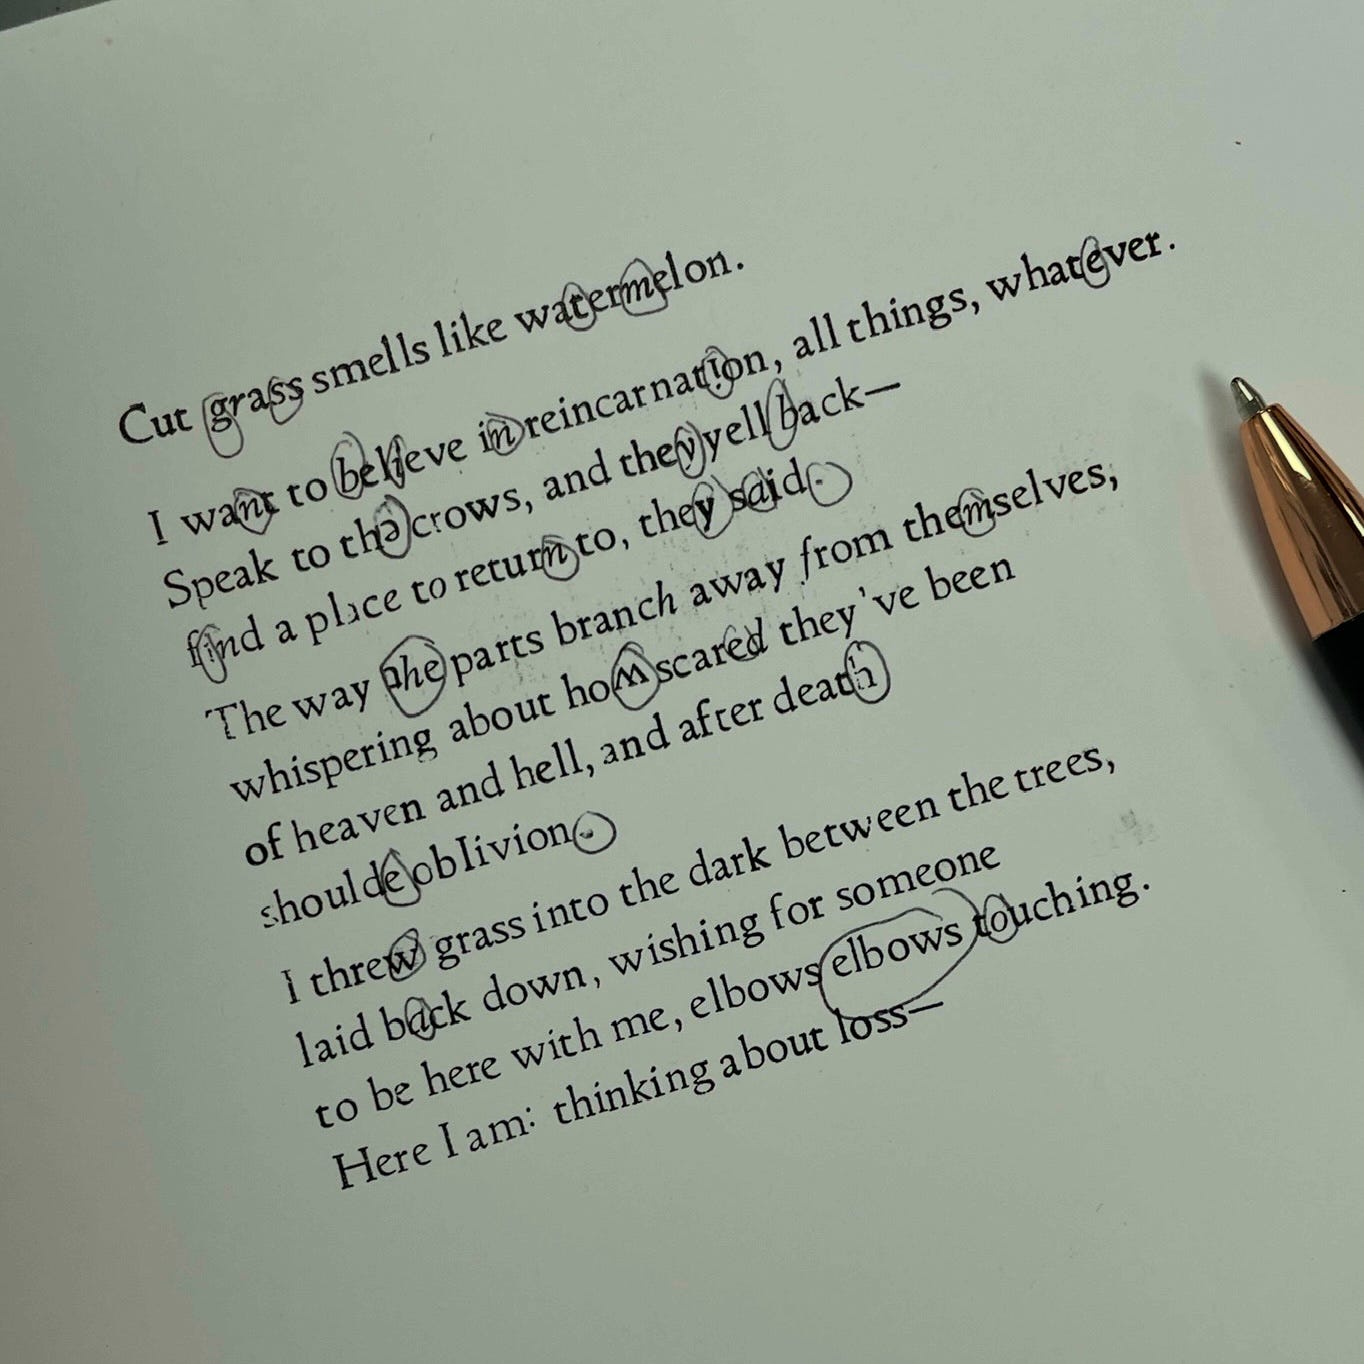 Cut grass smells like watermelon.
I want to believe in reincarnation, all things, whatever.
Speak to the crows, and they yell back—
find a place to return to, they said.
The way the parts branch away from themselves,
whispering about how scared they've been
of heaven and hell, and after death
should oblivion.
I threw grass into the dark between the trees,
laid back down, wishing for someone
to be here with me, elbows elbows touching.
Here I am: thinking about loss—